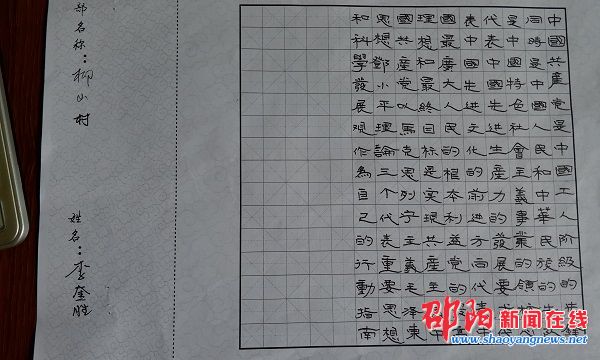 中國共產党是中國工人阶級的
同時是中國人民和中華民族的
是中國特色社會主義事業的領
代表中國先進生產力的發展要
表中國先進文化的前進方向代
國最廣大人民的根本利益党的
理想和最終目標是實現共產主
國共產党以馬克思列宁主義毛澤東
思想鄧小平理論三个代表重要思想
和科學發展觀作為自己的行動指南
部名称：柳山村
姓名：李奎胜
邵阳新闻在线
www.shaoyangnews.net